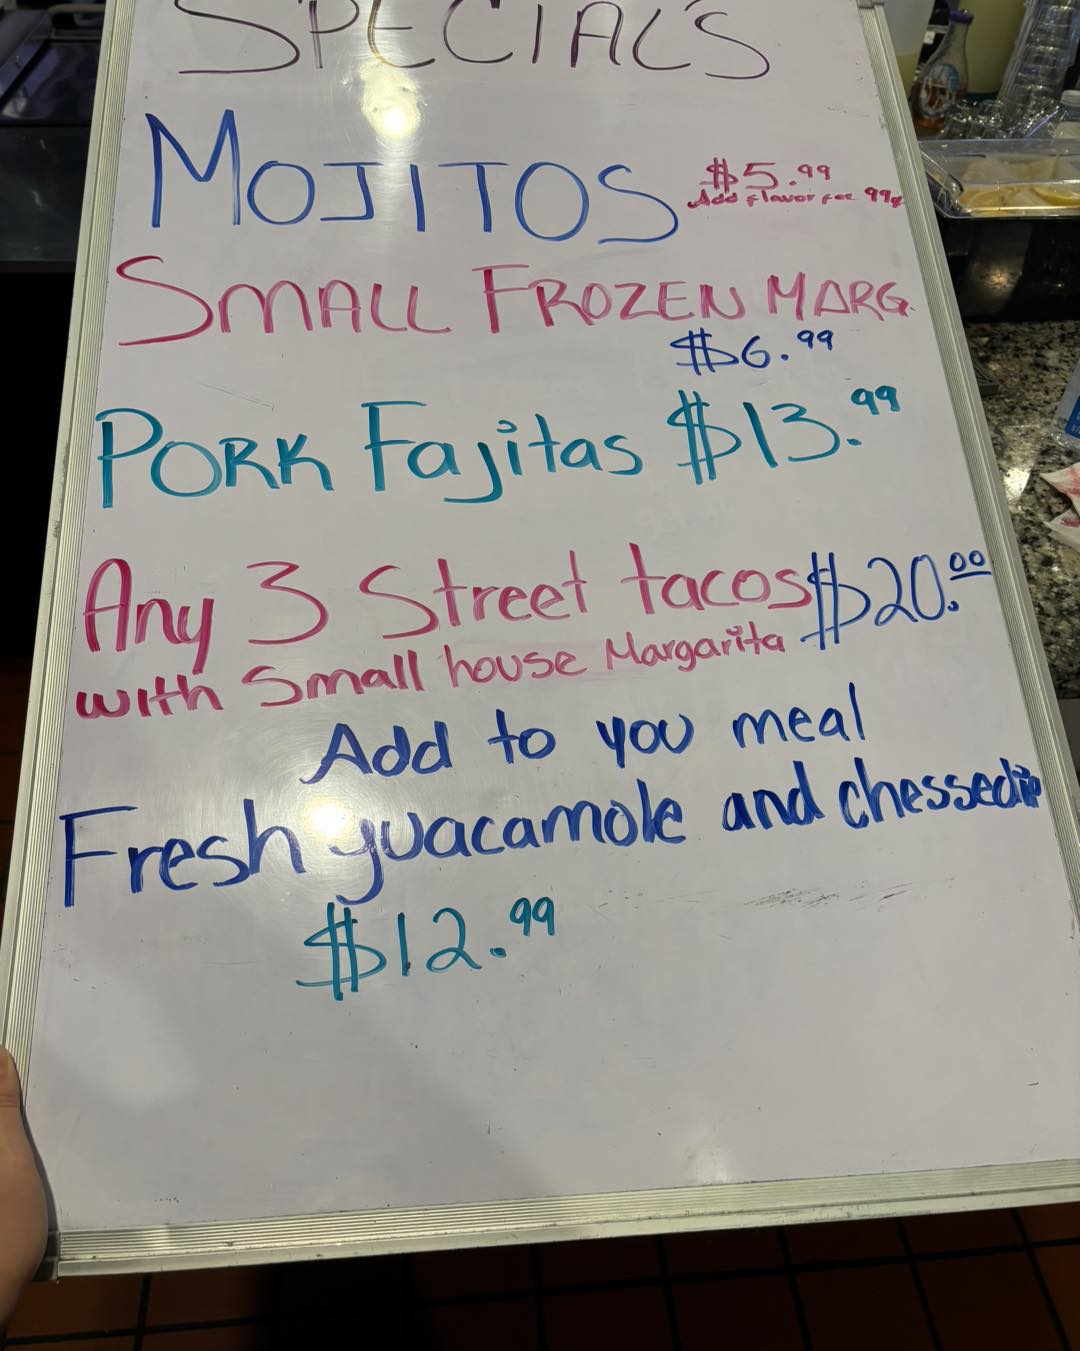 SPECIALS
MOJITOS $5.99
Add flavor for 99¢
SMALL FROZEN MARG.
$6.99
PORK Fajitas $13.99
Any 3 Street tacos $20.00
with Small house Margarita
Add to you meal
Fresh guacamole and chessedip
$12.99